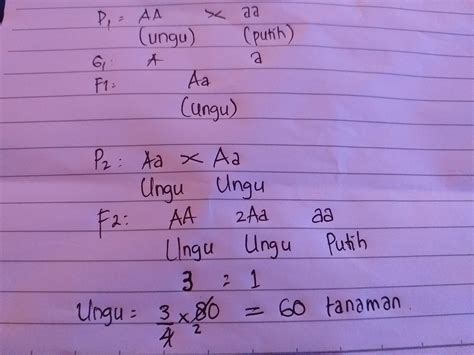 P₁ = AA × aa
(ungu) (putih)
G₁: A a
F1: Aa
(Ungu)
P₂: Aa × Aa
Ungu Ungu
F2: AA 2Aa aa
Ungu Ungu Putih
3 : 1
Ungu = 3/4 × 80 2 = 60 tanaman.